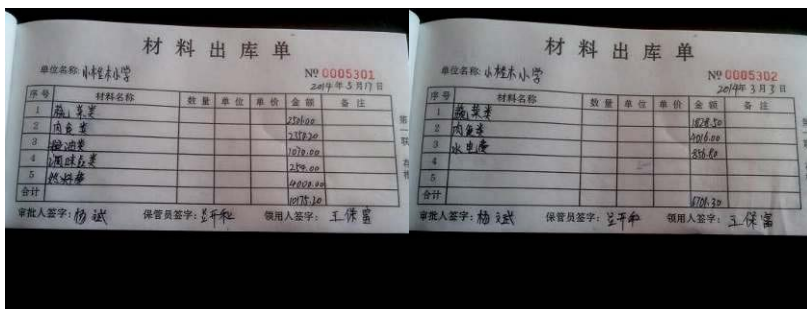 材料出库单
单位名称: 小桂木小学 № 0005301
2014年5月17日
序号 材料名称 数量 单位 单价 金额 备注
1 蔬菜类 2501.00
2 肉鱼类 2354.20
3 粮油类 1070.00
4 调味品类 250.00
5 燃料费 4000.00
合计 10175.20
审批人签字: 杨斌 保管员签字: 兰开和 领用人签字: 王保富
第一联
材料出库单
单位名称: 小桂木小学 № 0005302
2014年3月3日
序号 材料名称 数量 单位 单价 金额 备注
1 蔬菜类 1828.50
2 肉鱼类 4016.00
3 水电费 856.80
4
5
合计 6701.30
审批人签字: 杨斌 保管员签字: 兰开和 领用人签字: 王保富